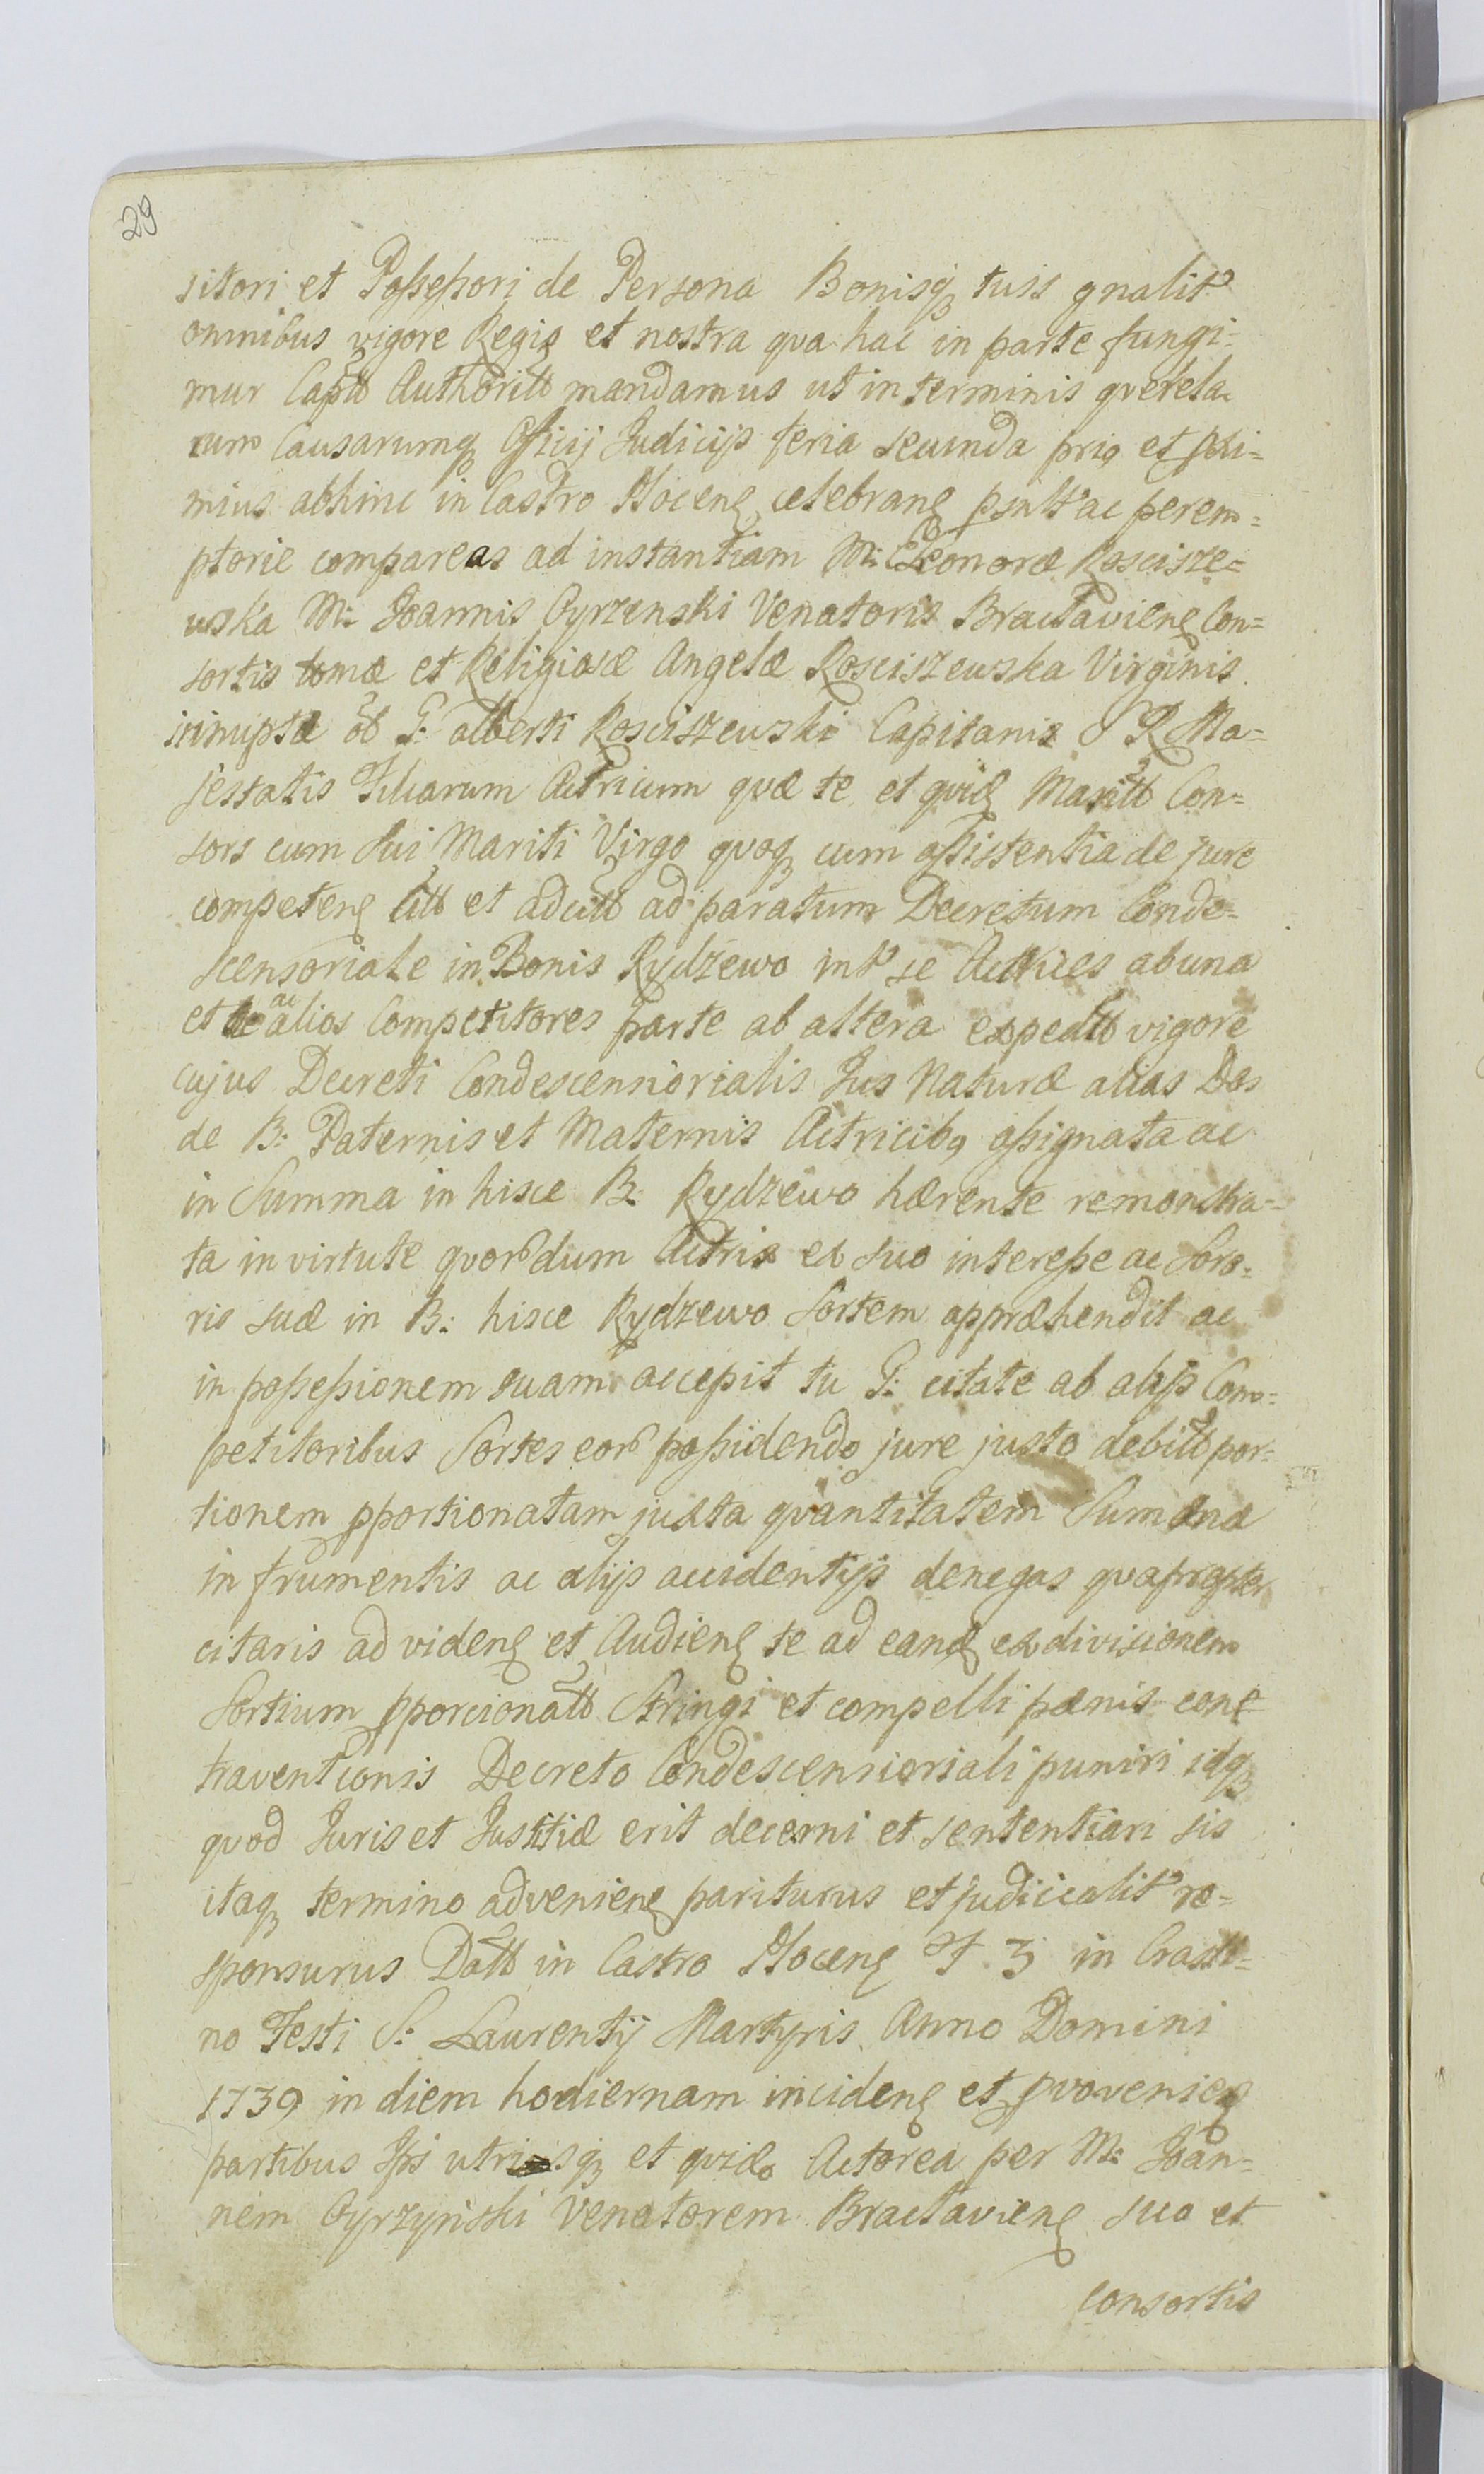 29
sitori et Possessori de Persona Bonisq tuis gnalit
omnibus vigore Regia et nostra qva hac in parte fungi=
mur Captt Authoritt mandamus ut in terminis qverela
rum Causarumq Officij Judicijs feria secunda pria et
mius abhinc in Castro Płocen celebran psnltr ac perem=
ptorie compareas ad instantiam M: Eleonoræ Roscisze=
wska M: Joannis Oyrzenski Venatoris Bractavien Con=
sortis et Religiosæ Angelæ Rosciszewska Virginis
innuptæ G: Alberti Rosciszewski Capitanis S R Ma=
jestatis Filiarum Actricum qvæ te et qvid Maritt Con=
sors cum Sui Mariti Virgo qvoq cum assistentia de jure
competen citt et adcitt ad paratum Decretum Conde=
scensoriale in Bonis Rydzewo intr se Actrices ab una
et te ac alios Competitores parte ab altera expeditt vigore
cujus Decreti Condescensiorialis Jus Naturæ alias Dos
de B: Paternis et Maternis Actricib9 assignata ac
in Summa in hisce B: Rydzewo hærente remonstra=
ta in virtute qvor dum Actrix ex suo interesse ac Soro=
ris suæ in B: hisce Rydzewo Sortem appræhendit ac
in possessionem suam accepit tu G: citate ab alijs Com=
petitoribus Sortes eor possidendo jure justo debitt por=
tionem pportionatam juxta qvantitatem Sumæ
in frumentis ac alijs accidentijs denegas qvapropter
citaris ad viden et Audien te ad eand exdivisionem
Sortium pporcionatt Stringi et compelli pænis con=
traventionis Decreto Condescensioriali puniri idq
qvod Juris et Justitiæ erit decerni et sententiari sis
itaq termino advenien pariturus et judicialitr re=
sponsurus Datt in Castro Płocen F. 3 in Crasti=
no Festi S: Laurentij Martyris Anno Domini
1739 in diem hodiernam inciden et provenien
partibus Ipsis utrisq et qvid Actorea per M: Joan=
nem Oyrzyński Venatorem Bractavien suo et
consortis